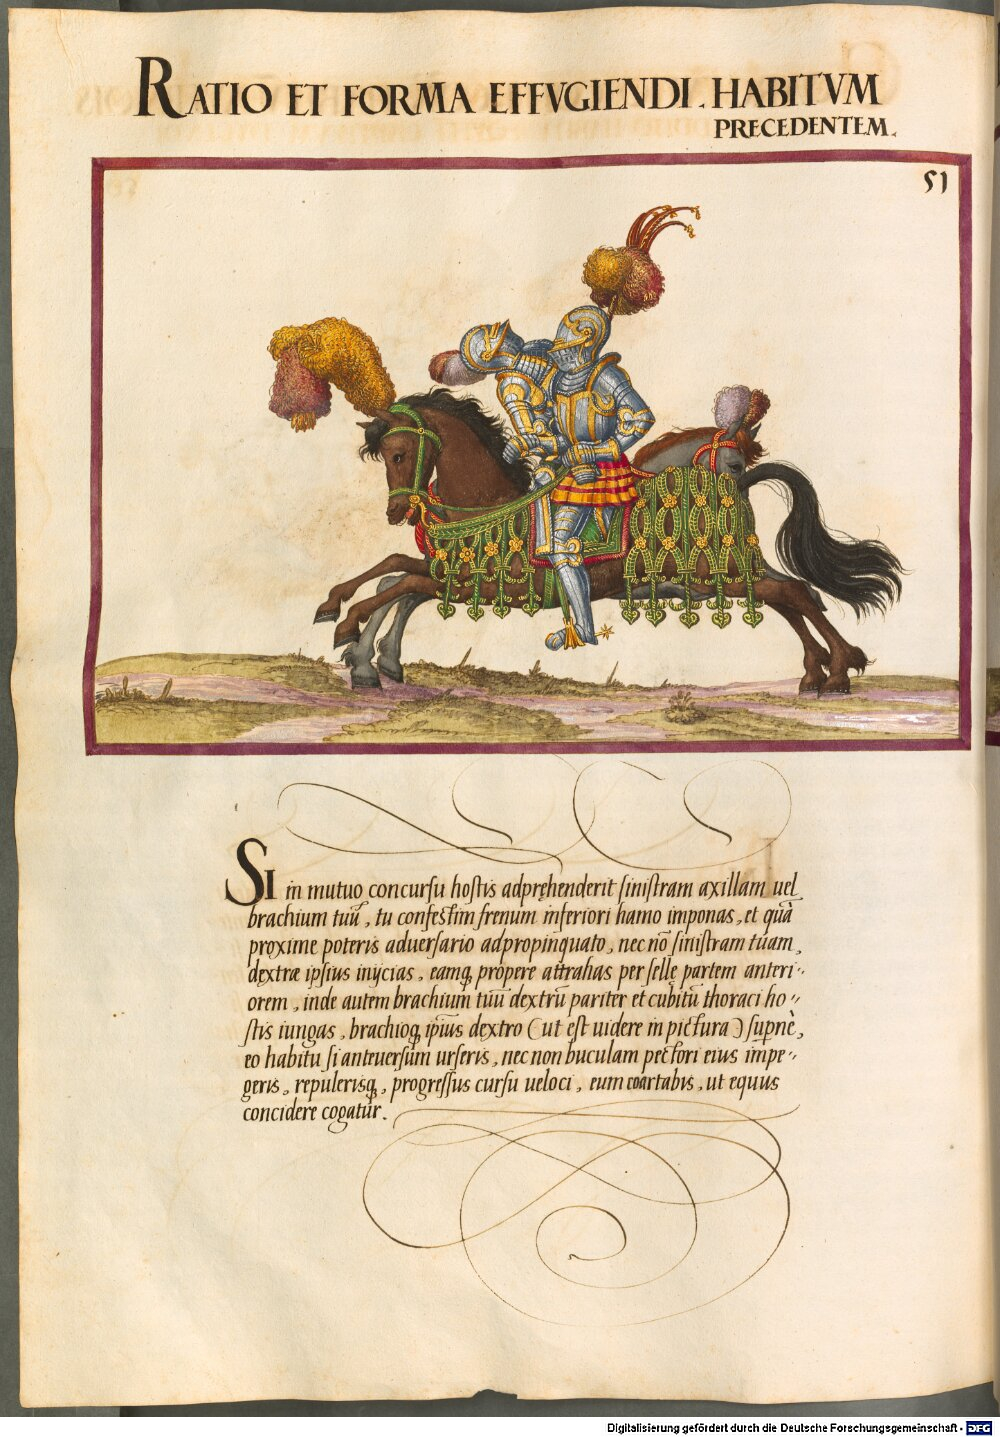 RATIO ET FORMA EFFVGIENDI. HABITVM
PRECEDENTEM.
51
SI in mutuo concursu hostis adpręhenderit sinistram axillam uel
brachium tuū, tu confestim frenum inferiori hamo imponas, et quā
proxime poteris aduersario adpropinquato, nec nō sinistram tuam,
dextræ ipsius inijcias, eamq, propere attrahas per sellę partem anteri-
orem, inde autem brachium tuū dextrū pariter et cubitū thoraci ho-
stis iungas, brachioq, ipsius dextro (ut est uidere in pictura) supernè,
eo habitu si anteuersum urseris, nec non buculam pectori eius impe-
geris, repulerisq, progressus cursu ueloci, eum coartabis, ut equus
concidere cogatur.
Digitalisierung gefördert durch die Deutsche Forschungsgemeinschaft - DFG